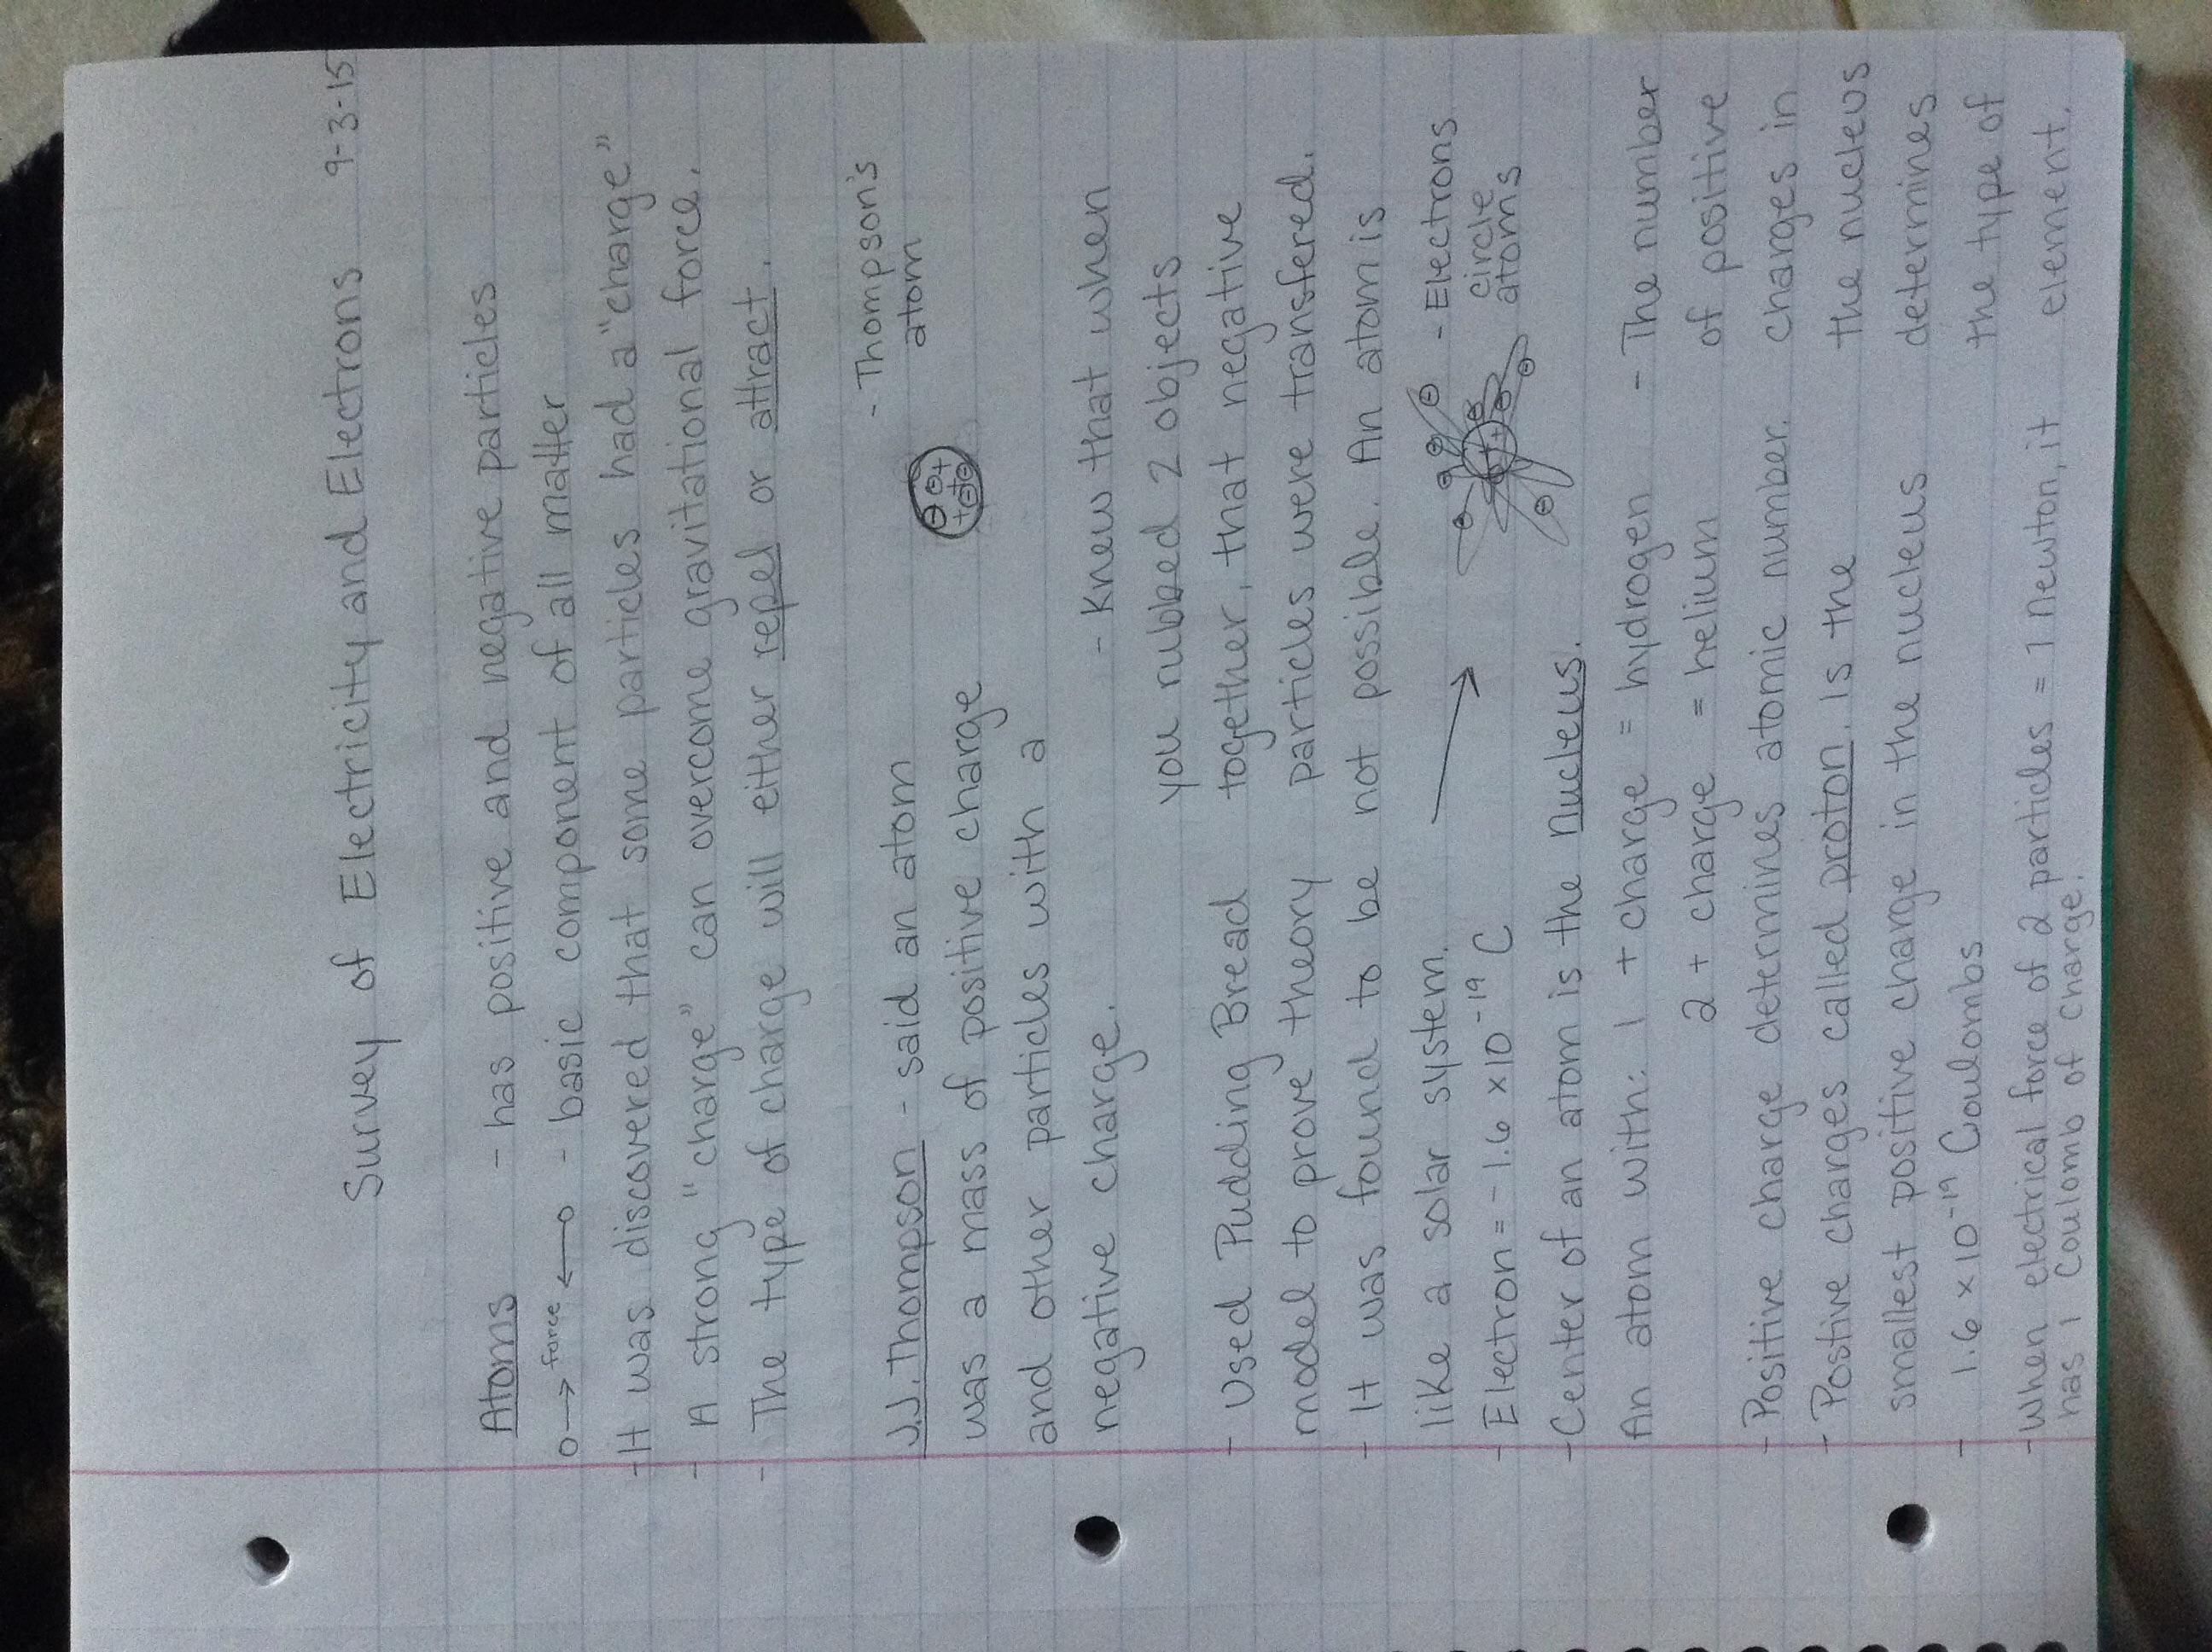 Survey of Electricity and Electrons 9-3-15
Atoms - has positive and negative particles
o→ force ←o - basic component of all matter
- It was discovered that some particles had a "charge"
- A strong "charge" can overcome gravitational force.
- The type of charge will either repel or attract.
- Thompson's
atom
J.J. Thompson - said an atom
was a mass of positive charge
and other particles with a
negative charge.
- Knew that when
you rubbed 2 objects
together, that negative
particles were transfered.
- Used Pudding Bread
model to prove theory
- It was found to be not possible. An atom is
like a solar system.
- Electrons
circle
atoms
- Electron = -1.6 x 10⁻¹⁹ C
- Center of an atom is the nucleus.
An atom with: 1 + charge = hydrogen
2 + charge = helium
- The number
of positive
charges in
the nucleus
determines
the type of
element.
- Positive charge determines atomic number.
- Postive charges called proton. Is the
smallest positive change in the nucleus
- 1.6 x 10⁻¹⁹ Coulombs
- When electrical force of 2 particles = 1 newton, it
has 1 Coulomb of charge.